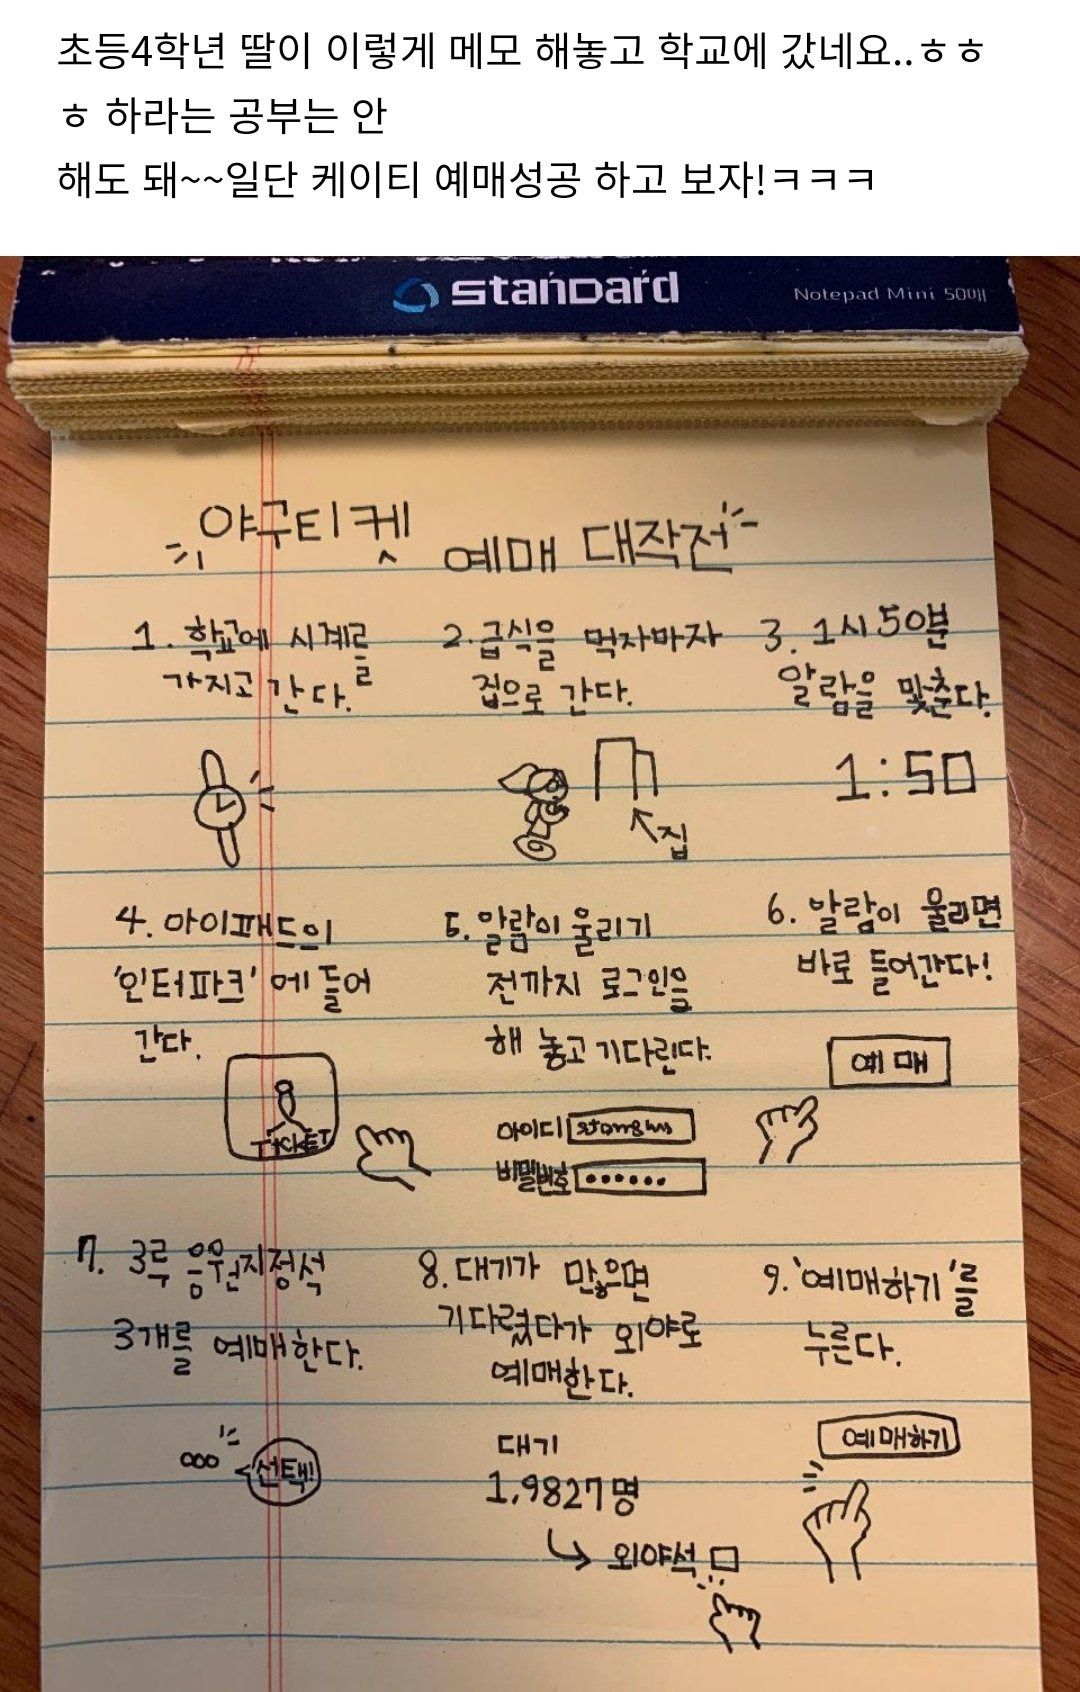 초등4학년 딸이 이렇게 메모 해놓고 학교에 갔네요..ㅎㅎ
ㅎ 하라는 공부는 안
해도 돼~~일단 케이티 예매성공 하고 보자!ㅋㅋㅋ
standard
Notepad Mini 50매
야구티켓
예매 대작전
1. 학교에 시계를
가지고 간다.
2. 급식을 먹자마자
집으로 간다.
3. 1시 50분
알람을 맞춘다.
집
1:50
4. 아이패드의
'인터파크'에 들어
간다.
5. 알람이 울리기
전까지 로그인을
해 놓고 기다린다.
6. 알람이 울리면
바로 들어간다!
TICKET
아이디
비밀번호 ••••••
예매
7. 3루 응원지정석
3개를 예매한다.
8. 대기가 많으면
기다렸다가 외야로
예매한다.
9. '예매하기'를
누른다.
선택!
대기
1,9827명
외야석
예매하기